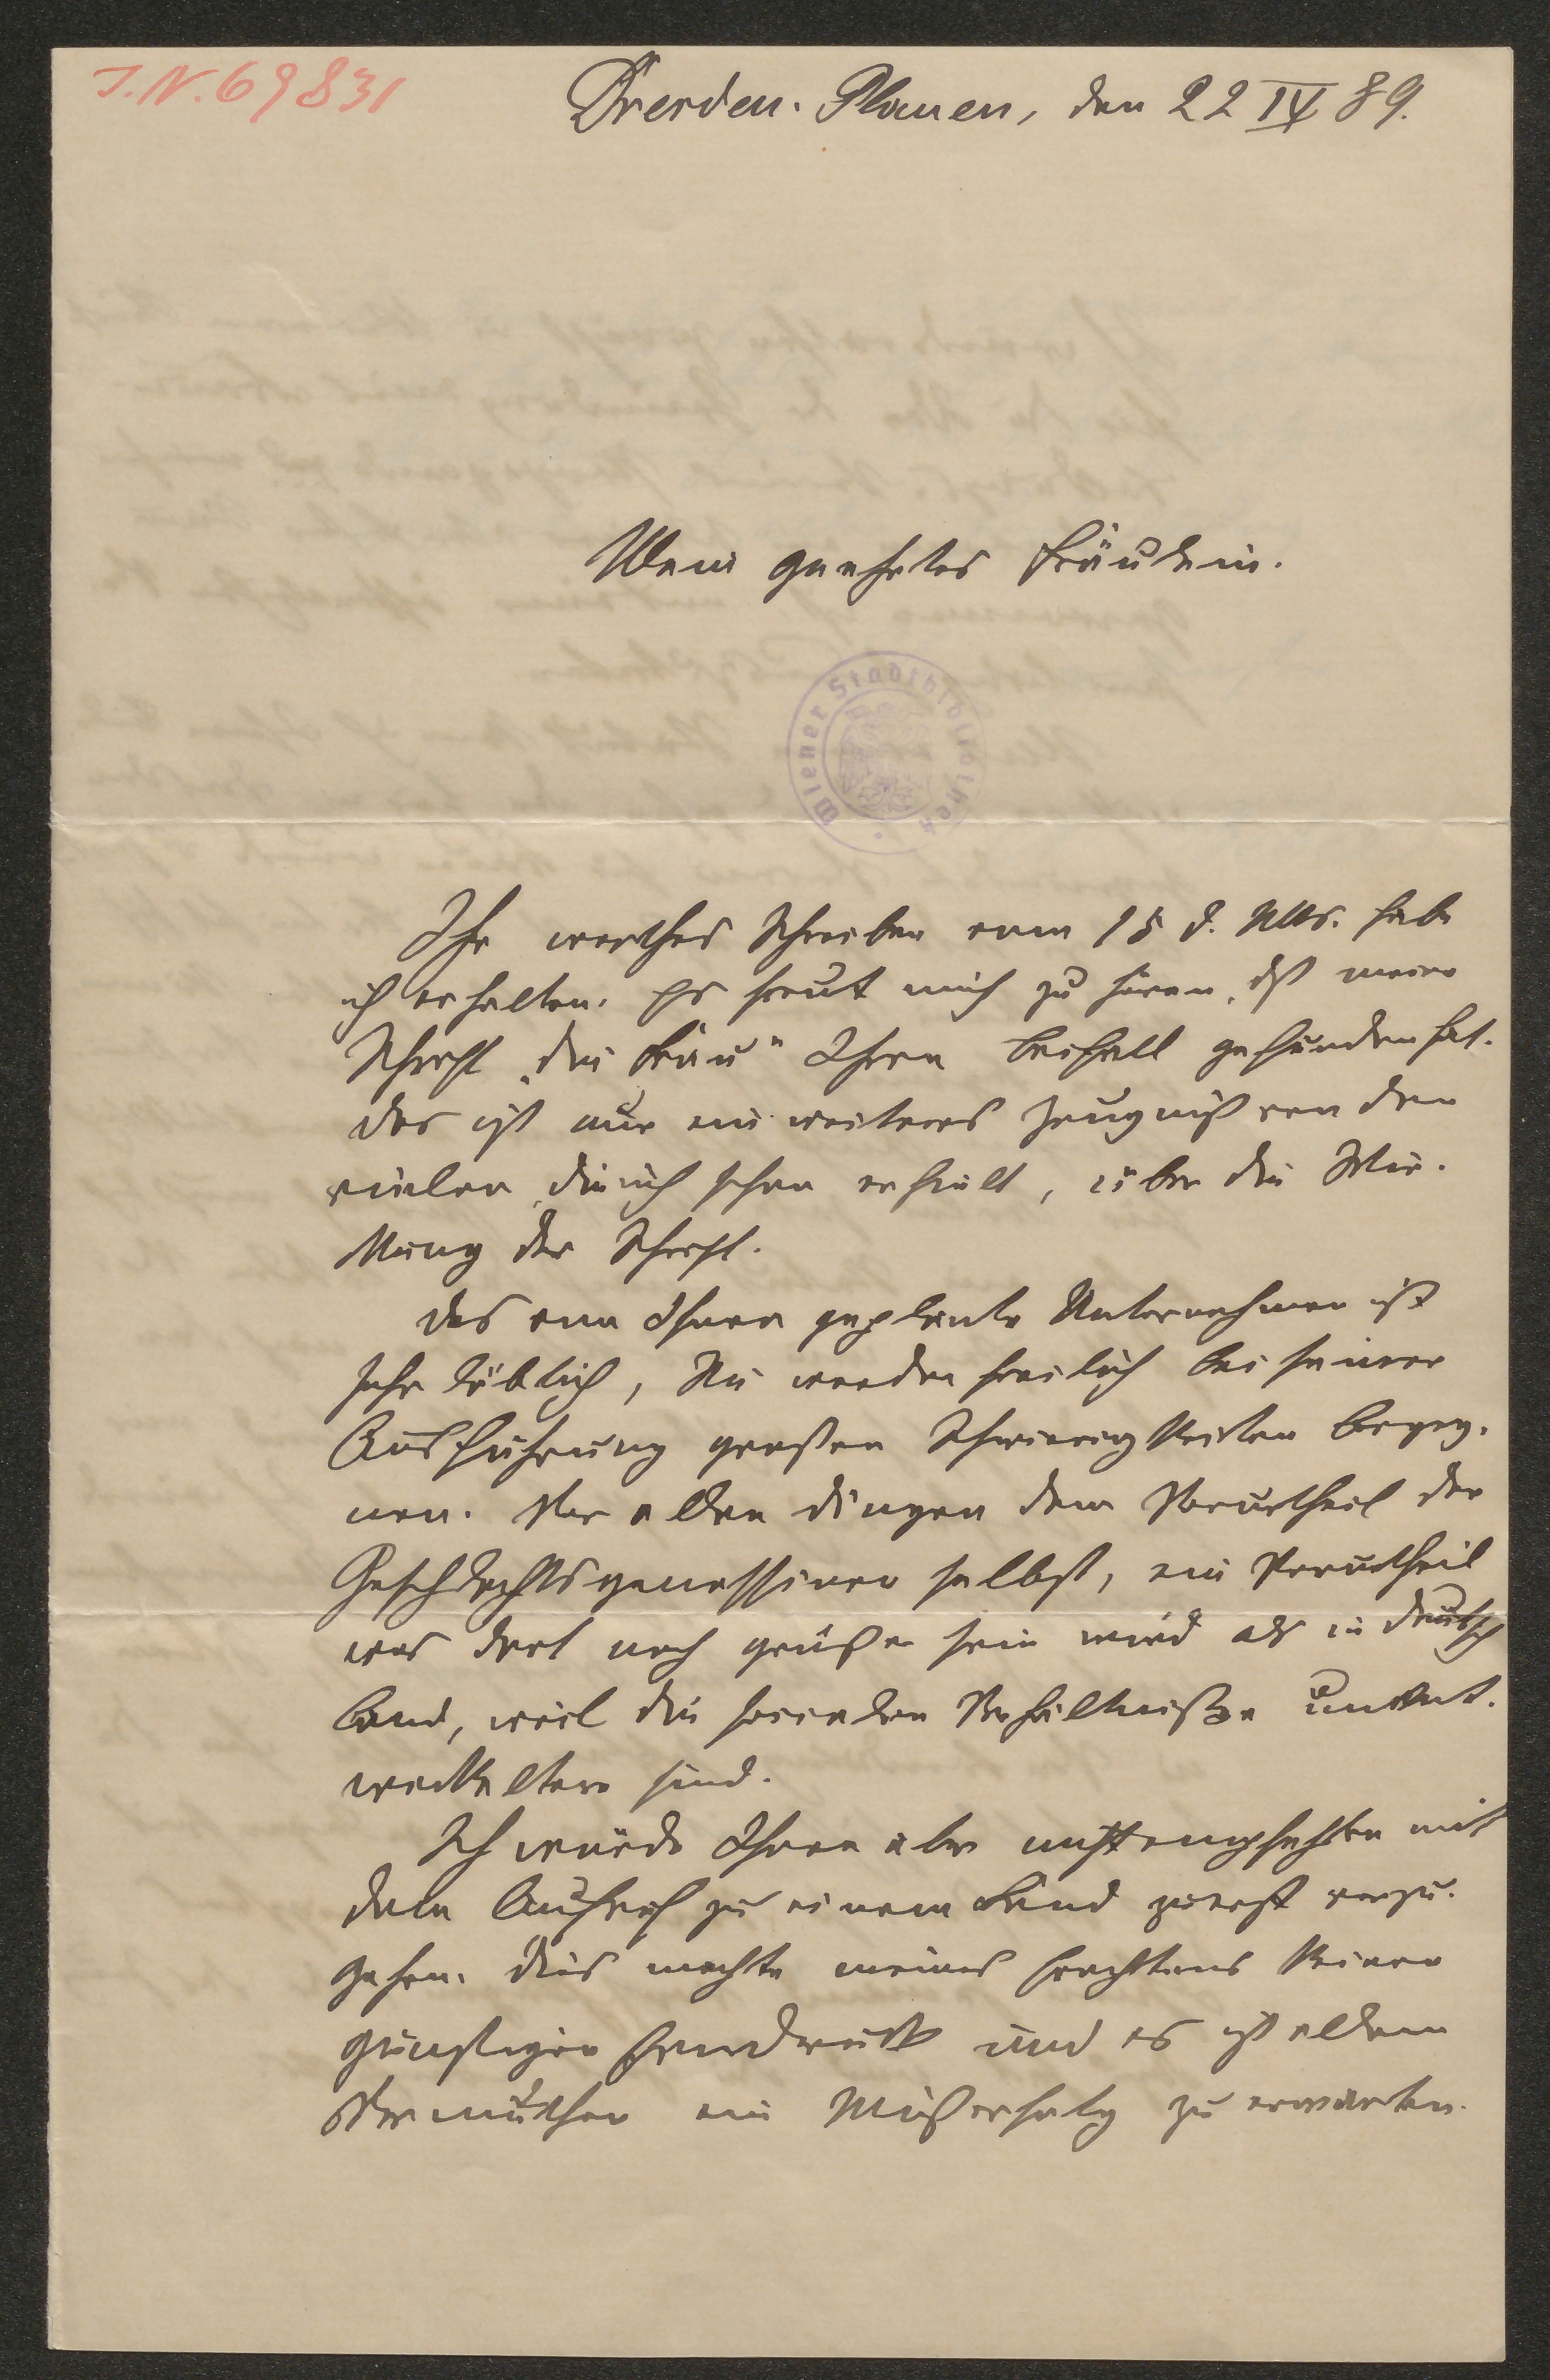 J.N. 69831
Dresden-Plauen, den 22 IV 89.
Mein geehrtes Fräulein.
Wiener Stadtbibliothek
Ihr werthes Schreiben vom 15 d. Mts. habe
ich erhalten. Es freut mich zu hören, dß meine
Schrift „die Frau" Ihren Beifall gefunden hat.
das ist nur ein weiteres Zeugniß von den
vielen, die ich schon erhielt, über die Wir-
kung der Schrift.
das von Ihnen geplante Unternehmen ist
sehr löblich, Sie werden freilich bei seiner
Ausführung großen Schwierigkeiten begeg-
nen. Vor allen dingen dem Vorurtheil der
Geschlechtsgenossinen selbst, ein Vorurtheil
was dort noch größer sein wird als in deutsch
land, weil die socialen Verhältniße unent-
wickelter sind.
Ich würde Ihnen aber nicht empfehlen mit
dem Aufruf zu einem Bund zuerst vorzu-
gehen. dies machte meines Erachtens keinen
günstigen Eindruck und es ist allem
Vermuthen ein Mißerfolg zu erwarten.